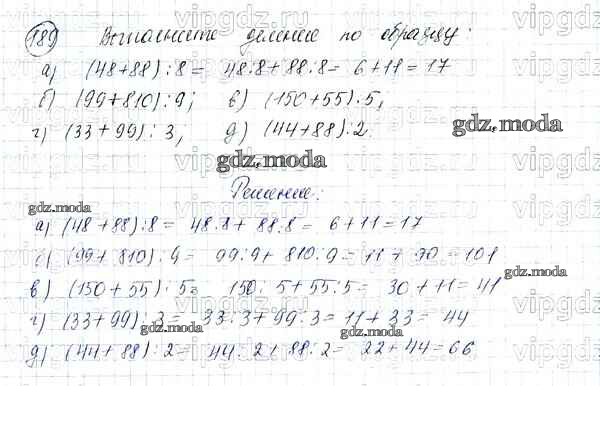 189) Выполните деление по образцу:
а) (48+88):8 = 48:8+88:8 = 6+11 = 17
б) (99+810):9; в) (150+55):5;
г) (33+99):3; д) (44+88):2.
gdz.moda
gdz.moda
Решение:
gdz.moda
а) (48+88):8 = 48:8+88:8 = 6+11 = 17
б) (99+810):9 = 99:9+810:9 = 11+90 = 101
gdz.moda
в) (150+55):5 = 150:5+55:5 = 30+11 = 41
г) (33+99):3 = 33:3+99:3 = 11+33 = 44
gdz.moda
gdz.moda
д) (44+88):2 = 44:2+88:2 = 22+44 = 66